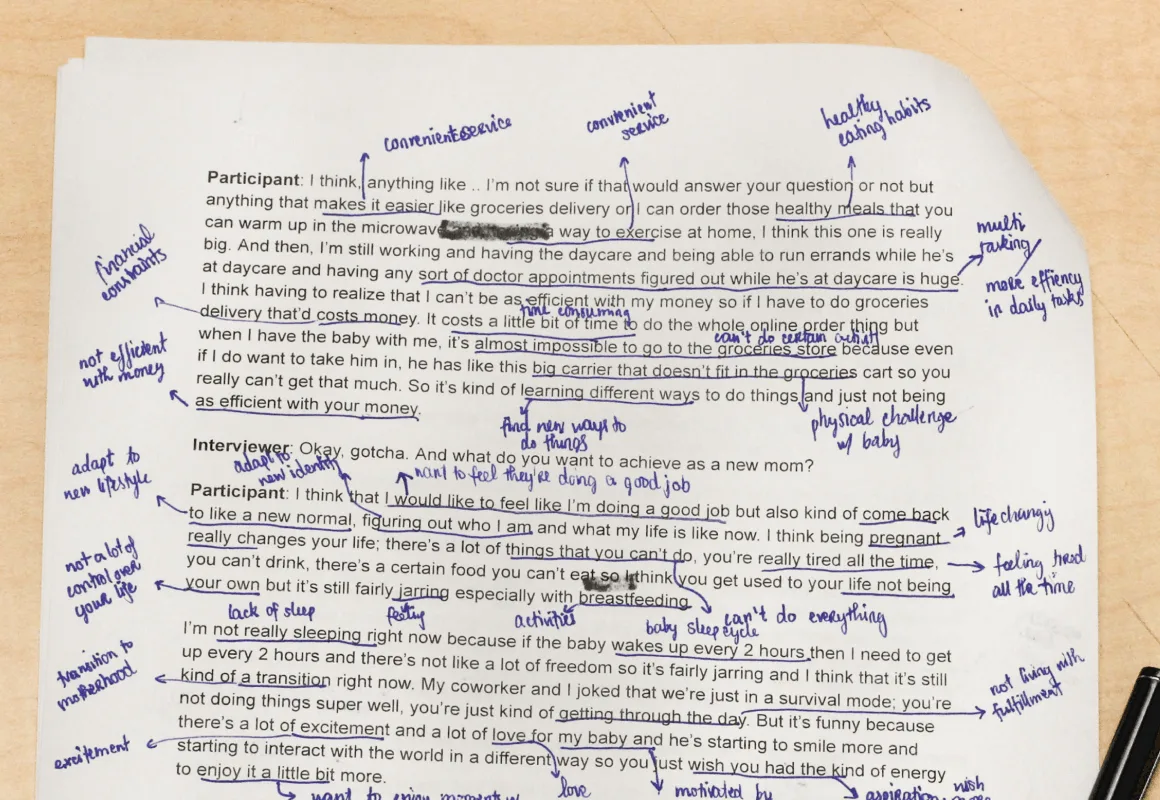 convenient service
convenient
service
healthy
eating habits
Participant: I think, anything like .. I'm not sure if that would answer your question or not but
anything that makes it easier like groceries delivery or I can order those healthy meals that you
can warm up in the microwave a way to exercise at home, I think this one is really
big. And then, I'm still working and having the daycare and being able to run errands while he's
at daycare and having any sort of doctor appointments figured out while he's at daycare is huge.
multi
tasking/
more effiency
in daily tasks
I think having to realize that I can't be as efficient with my money so if I have to do groceries
financial
constraints
time consuming
delivery that'd costs money. It costs a little bit of time to do the whole online order thing but
can't do certain
when I have the baby with me, it's almost impossible to go to the groceries store because even
if I do want to take him in, he has like this big carrier that doesn't fit in the groceries cart so you
not efficient
with money
really can't get that much. So it's kind of learning different ways to do things and just not being
as efficient with your money.
find new ways to
do things
physical challenge
w/ baby
Interviewer: Okay, gotcha. And what do you want to achieve as a new mom?
adapt to
new identity
want to feel they're doing a good job
adapt to
new lifestyle
Participant: I think that I would like to feel like I'm doing a good job but also kind of come back
to like a new normal, figuring out who I am and what my life is like now. I think being pregnant
life changy
really changes your life; there's a lot of things that you can't do, you're really tired all the time,
feeling tired
all the time
you can't drink, there's a certain food you can't eat so I think you get used to your life not being
not a lot of
control over
your life
your own but it's still fairly jarring especially with breastfeeding.
lack of sleep
feeling
activities
baby sleep cycle
can't do everything
I'm not really sleeping right now because if the baby wakes up every 2 hours then I need to get
up every 2 hours and there's not like a lot of freedom so it's fairly jarring and I think that it's still
transition to
motherhood
kind of a transition right now. My coworker and I joked that we're just in a survival mode; you're
not living with
fulfillment
not doing things super well, you're just kind of getting through the day. But it's funny because
there's a lot of excitement and a lot of love for my baby and he's starting to smile more and
excitement
starting to interact with the world in a different way so you just wish you had the kind of energy
to enjoy it a little bit more.
want to enjoy moments w
love
motivated by
aspiration
wish